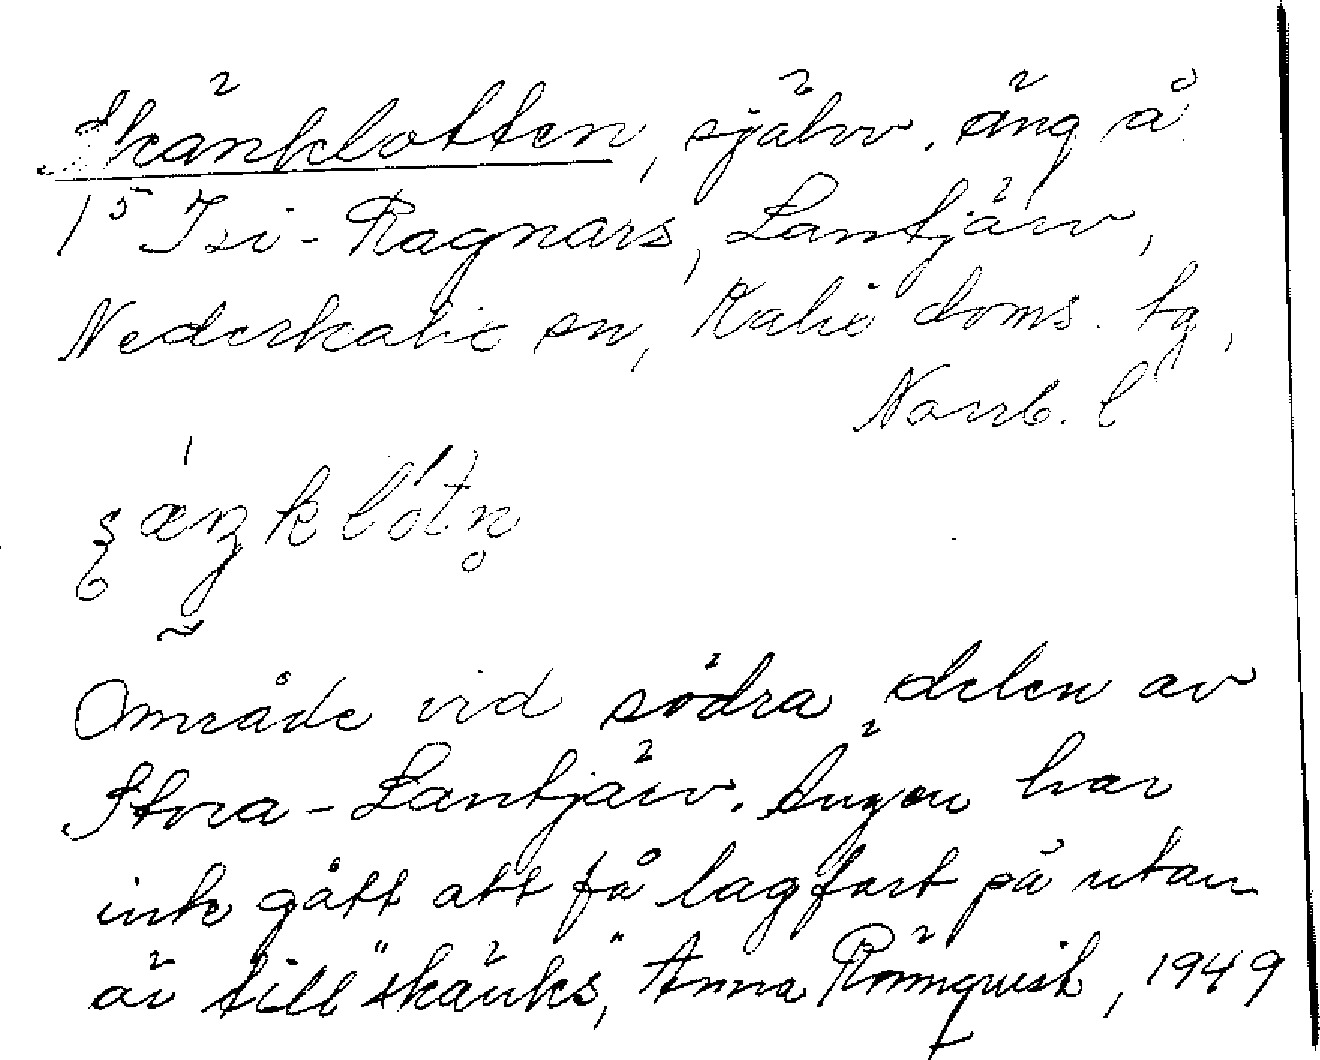 Skänklotten, självv. äng å
1⁵ Isi-Ragnars, Lantjärv,
Nederkalix sn, Kalix doms. tg,
Norrb. l
Område vid södra delen av
Stora-Lantjärv. Ängen har
inte gått att få lagfart på utan
är till "skänks", Anna Rönnquist, 1949